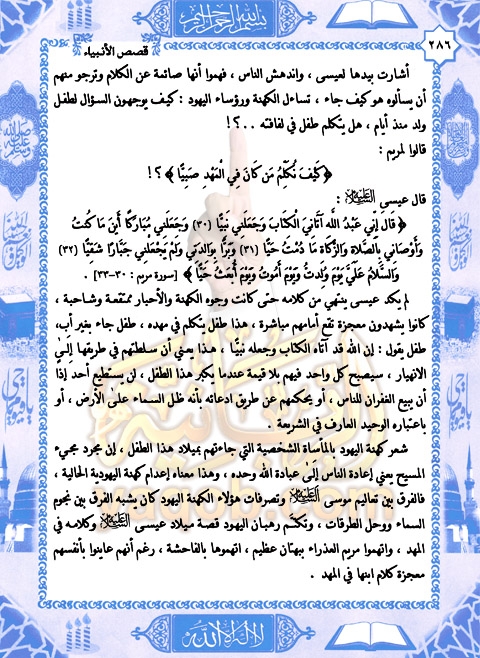 بسم الله الرحمن الرحيم
قصص الأنبياء
٢٨٦
أشارت بيدها لعيسى ، واندهش الناس ، فهموا أنها صائمة عن الكلام وترجو منهم
أن يسألوه هو كيف جاء ، تساءل الكهنة ورؤساء اليهود : كيف يوجهون السؤال لطفل
ولد منذ أيام ، هل يتكلم طفل في لفافته ..؟!
قالوا لمريم :
﴿كَيْفَ نُكَلِّمُ مَن كَانَ فِي الْمَهْدِ صَبِيًّا ﴾ ؟!
قال عيسى عليه السلام :
﴿ قَالَ إِنِّي عَبْدُ اللَّه آتَانِيَ الْكِتَابَ وَجَعَلَنِي نَبِيًّا (٣٠) وَجَعَلَنِي مُبَارَكًا أَيْنَ مَا كُنتُ
وَأَوْصَانِي بِالصَّلاةِ وَالزَّكَاةِ مَا دُمْتُ حَيًّا (٣١) وَبَرًّا بِوَالِدَتِي وَلَمْ يَجْعَلْنِي جَبَّارًا شَقِيًّا (٣٢)
وَالسَّلامُ عَلَيَّ يَوْمَ وُلِدتُّ وَيَوْمَ أَمُوتُ وَيَوْمَ أُبْعَثُ حَيًّا ﴾ [سورة مريم : ٣٠-٣٣] .
لم يكد عيسى ينتهي من كلامه حتى كانت وجوه الكهنة والأحبار ممتقعة وشاحبة ،
كانوا يشهدون معجزة تقع أمامهم مباشرة ، هذا طفل يتكلم في مهده ، طفل جاء بغير أب،
طفل يقول : إن الله قد آتاه الكتاب وجعله نبيًّا ، هذا يعني أن سلطتهم في طريقها إلى
الانهيار ، سيصبح كل واحد فيهم بلا قيمة عندما يكبر هذا الطفل ، لن يستطيع أحد إذًا
أن يبيع الغفران للناس ، أو يحكمهم عن طريق ادعائه بأنه ظل السماء على الأرض ، أو
باعتباره الوحيد العارف في الشريعة .
شعر كهنة اليهود بالمأساة الشخصية التي جاءتهم بميلاد هذا الطفل ، إن مجرد مجيء
المسيح يعني إعادة الناس إلى عبادة الله وحده ، وهذا معناه إعدام كهنة اليهودية الحالية ،
فالفرق بين تعاليم موسى عليه السلام وتصرفات هؤلاء الكهنة اليهود كان يشبه الفرق بين نجوم
السماء ووحل الطرقات ، وتكتم رهبان اليهود قصة ميلاد عيسى عليه السلام وكلامه في
المهد ، واتهموا مريم العذراء ببهتان عظيم ، اتهموها بالفاحشة ، رغم أنهم عاينوا بأنفسهم
معجزة كلام ابنها في المهد .
لا إله إلا الله